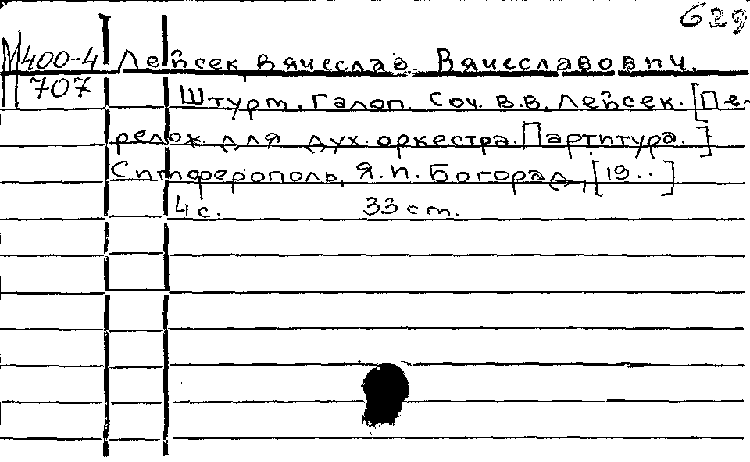 629
М400-4 Лейсек Вячеслав Вячеславович.
707
Штурм. Галоп. Соч. В.В. Лейсек. [Пе-
релож. для дух. оркестра. Партитура.]
Симферополь, Я.П. Богорад, [19..]
4 с. 33 см.